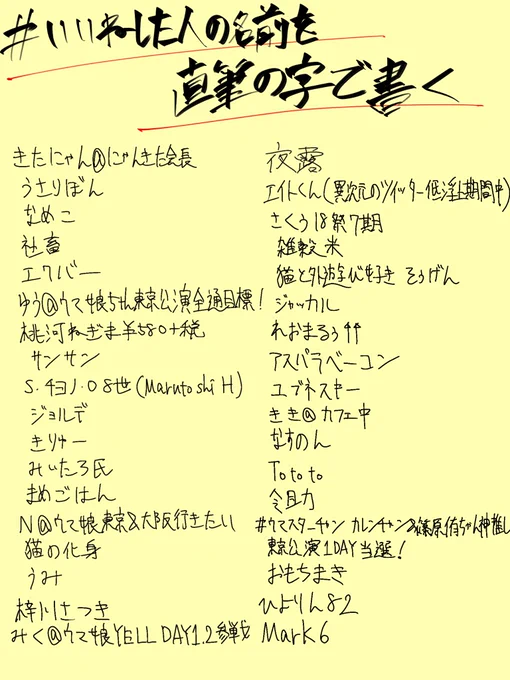 #いいねした人の名前を
直筆の字で書く
きたにゃん@にゃんきた会長
うさりぼん
なめこ
社畜
エクバー
ゆう@ウマ娘5th東京公演全通目標!
桃河ねぎま¥580+税
サンサン
S.チヨノ.08世(Marutoshi H)
ジョルデ
きりゅー
みいたろ氏
まめごはん
N@ウマ娘東京&大阪行きたい
猫の化身
うみ
梓川さつき
みく@ウマ娘YELL DAY1.2参戦
夜露
エイトくん(異次元のツイッター低浮上期間中)
さくう18祭7期
雑穀米
猫と外遊び好き そうげん
ジャッカル
れおまるぅ
アスパラベーコン
ユブネスキー
きき@カフェ中
なすのん
Tototo
#ウマスターチャン カレンチャン&篠原侑ちゃん神推し
東京公演1DAY当選!
おもちまき
ひよりん82
Mark6